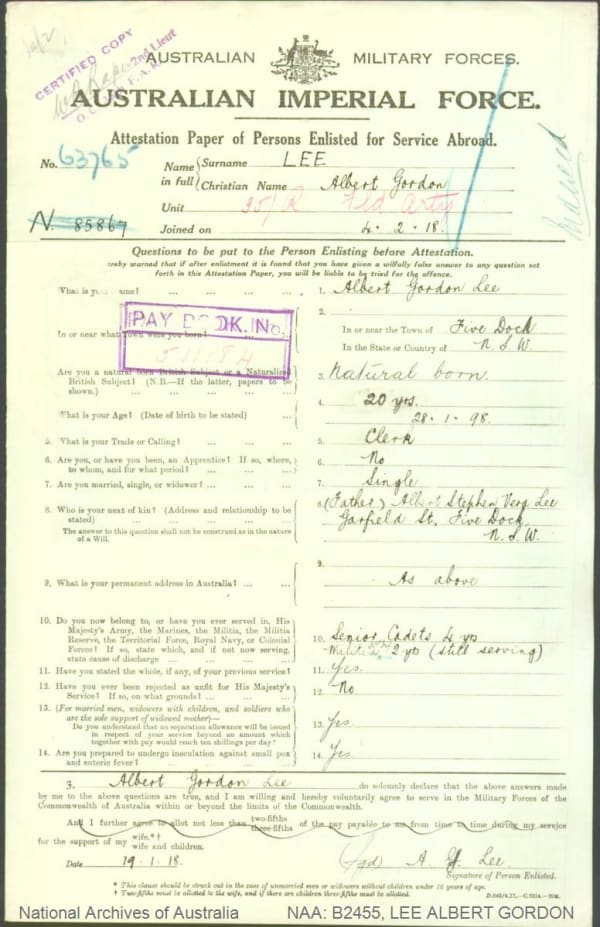 CERTIFIED COPY
2nd Lieut
AUSTRALIAN MILITARY FORCES.
AUSTRALIAN IMPERIAL FORCE.
Attestation Paper of Persons Enlisted for Service Abroad.
No. 63765
Name in full { Surname LEE
Christian Name Albert Gordon
Unit Fld Arty
N. 85867
Joined on 4. 2. 18.
Questions to be put to the Person Enlisting before Attestation.
hereby warned that if after enlistment it is found that you have given a wilfully false answer to any question set
forth in this Attestation Paper, you will be liable to be tried for the offence.
What is your Name? ... 1. Albert Gordon Lee
PAY BOOK. No.
In or near what Town were you born? ... 2. In or near the Town of Five Dock
In the State or Country of N. S. W.
Are you a natural born British Subject or a Naturalised
British Subject? (N.B.—If the latter, papers to be
shown.) ... 3. Natural born.
What is your Age? (Date of birth to be stated) ... 4. 20 yrs.
28. 1. 98.
5. What is your Trade or Calling? ... 5. Clerk
6. Are you, or have you been, an Apprentice? If so, where,
to whom, and for what period? ... 6. No
7. Are you married, single, or widower? ... 7. Single
8. Who is your next of kin? (Address and relationship to be
stated) ... 8. (Father) Albert Stephen Vera Lee
Garfield St, Five Dock
N. S. W.
The answer to this question shall not be construed as in the nature
of a Will.
9. What is your permanent address in Australia? ... 9. As above
10. Do you now belong to, or have you ever served in, His
Majesty's Army, the Marines, the Militia, the Militia
Reserve, the Territorial Force, Royal Navy, or Colonial
Forces? If so, state which, and if not now serving,
state cause of discharge ... 10. Senior Cadets 4 yrs
Militia 2 yrs (still serving)
11. Have you stated the whole, if any, of your previous service? 11. Yes.
12. Have you ever been rejected as unfit for His Majesty's
Service? If so, on what grounds? ... 12. No
13. (For married men, widowers with children, and soldiers who
are the sole support of widowed mother)—
Do you understand that no separation allowance will be issued
in respect of your service beyond an amount which
together with pay would reach ten shillings per day? ... 13. Yes.
14. Are you prepared to undergo inoculation against small pox
and enteric fever? ... 14. Yes.
I, Albert Gordon Lee do solemnly declare that the above answers made
by me to the above questions are true, and I am willing and hereby voluntarily agree to serve in the Military Forces of the
Commonwealth of Australia within or beyond the limits of the Commonwealth.
And I further agree to allot not less than two-fifths three-fifths of the pay payable to me from time to time during my service
for the support of my wife.*† wife and children.
Date 19. 1. 18. (Sgd) A. G. Lee
Signature of Person Enlisted.
* This clause should be struck out in the case of unmarried men or widowers without children under 16 years of age.
† Two-fifths must be allotted to the wife, and if there are children three-fifths must be allotted.
National Archives of Australia NAA: B2455, LEE ALBERT GORDON